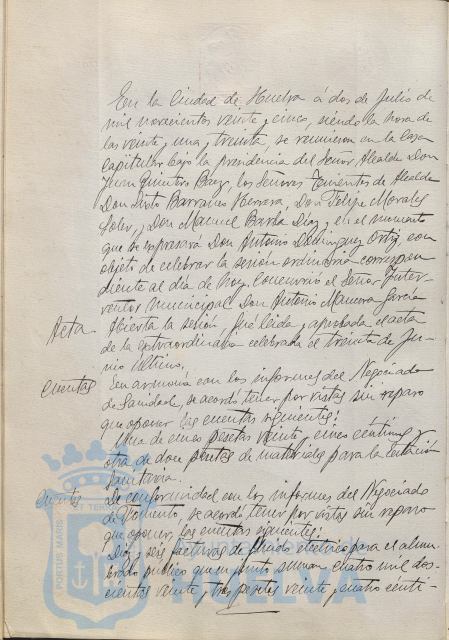 En la Ciudad de Huelva á dos de Julio de
mil novecientos veinte y cinco, siendo la hora de
las veinte y una y treinta, se reunieron en la Casa
Capitular bajo la presidencia del Señor Alcalde Don
Juan Quintero Baez, los Señores Tenientes de Alcalde
Don Sixto Barranco Herrera, Don Felipe Morales
Soler, y Don Manuel Barba Díaz, y en el momento
que se expresará Don Antonio Domínguez Ortiz, con
objeto de celebrar la sesión ordinaria correspon
diente al día de hoy. Concurrió el Señor Inter-
ventor Municipal Don Antonio García
Acta. Abierta la sesión, fué leída y aprobada el acta
de la extraordinaria celebrada el treinta de Ju-
nio último.
Cuentas En armonía con los informes del Negociado
de Sanidad, se acordó tener por vistas sin reparo
que oponer las cuentas siguientes:
Una de cinco pesetas veinte y cinco céntimos y
otra de doce pesetas de materiales para la estación
sanitaria.
Cuentas. De conformidad con los informes del Negociado
de Fomento, se acordó tener por vistas sin reparo
que oponer, las cuentas siguientes:
Diez y seis facturas de fluido electrico para el alum-
brado publico que en junto suman cuatro mil dos-
cientas veinte y tres pesetas veinte y cuatro cénti-
PORTUS MARIS
HUELVA